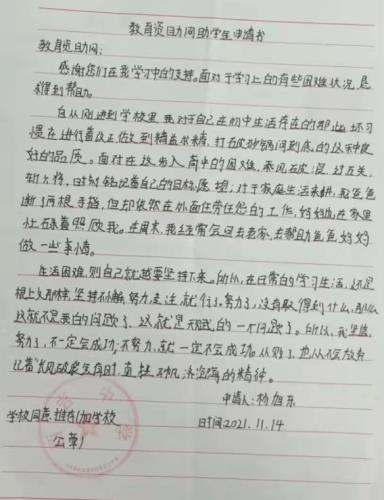 教育资助网助学生申请书
教育资助网:
感谢您们在我学习中的支持。面对于学习上的有些困难状况,是
难得到帮助。
自从刚进到学校里,我对于自己在初中生活存在的那些坏习
惯在进行着改正做到精益求精,打破砂锅问到底的这种良
好的品质。面对在这步入高中的困难,乘风破浪,过五关,
斩六将,时刻铭记着自己的目标、愿望;对于家庭生活来讲,我爸爸
断了两根手指,但却依然在外面任劳任怨的工作,妈妈在家里
照顾我。在周末,我经常会回去老家,去帮助爸爸妈妈
做一些事情。
生活困难,则自己就越要坚持下来。所以,在日常的学习生活,还是
坚持不懈,努力,就行了。努力了,没有取得到什么,那么
这就不是我的问题了,这就是天赋的一个问题了。所以,我坚信,
努力了,不一定会成功;不努力,就一定不会成功。从则了,也从不会放弃
记着“长风破浪会有时,直挂云帆济沧海”的精神。
申请人:杨旭东
学校同意推到加学校
公章!
时间2021.11.14